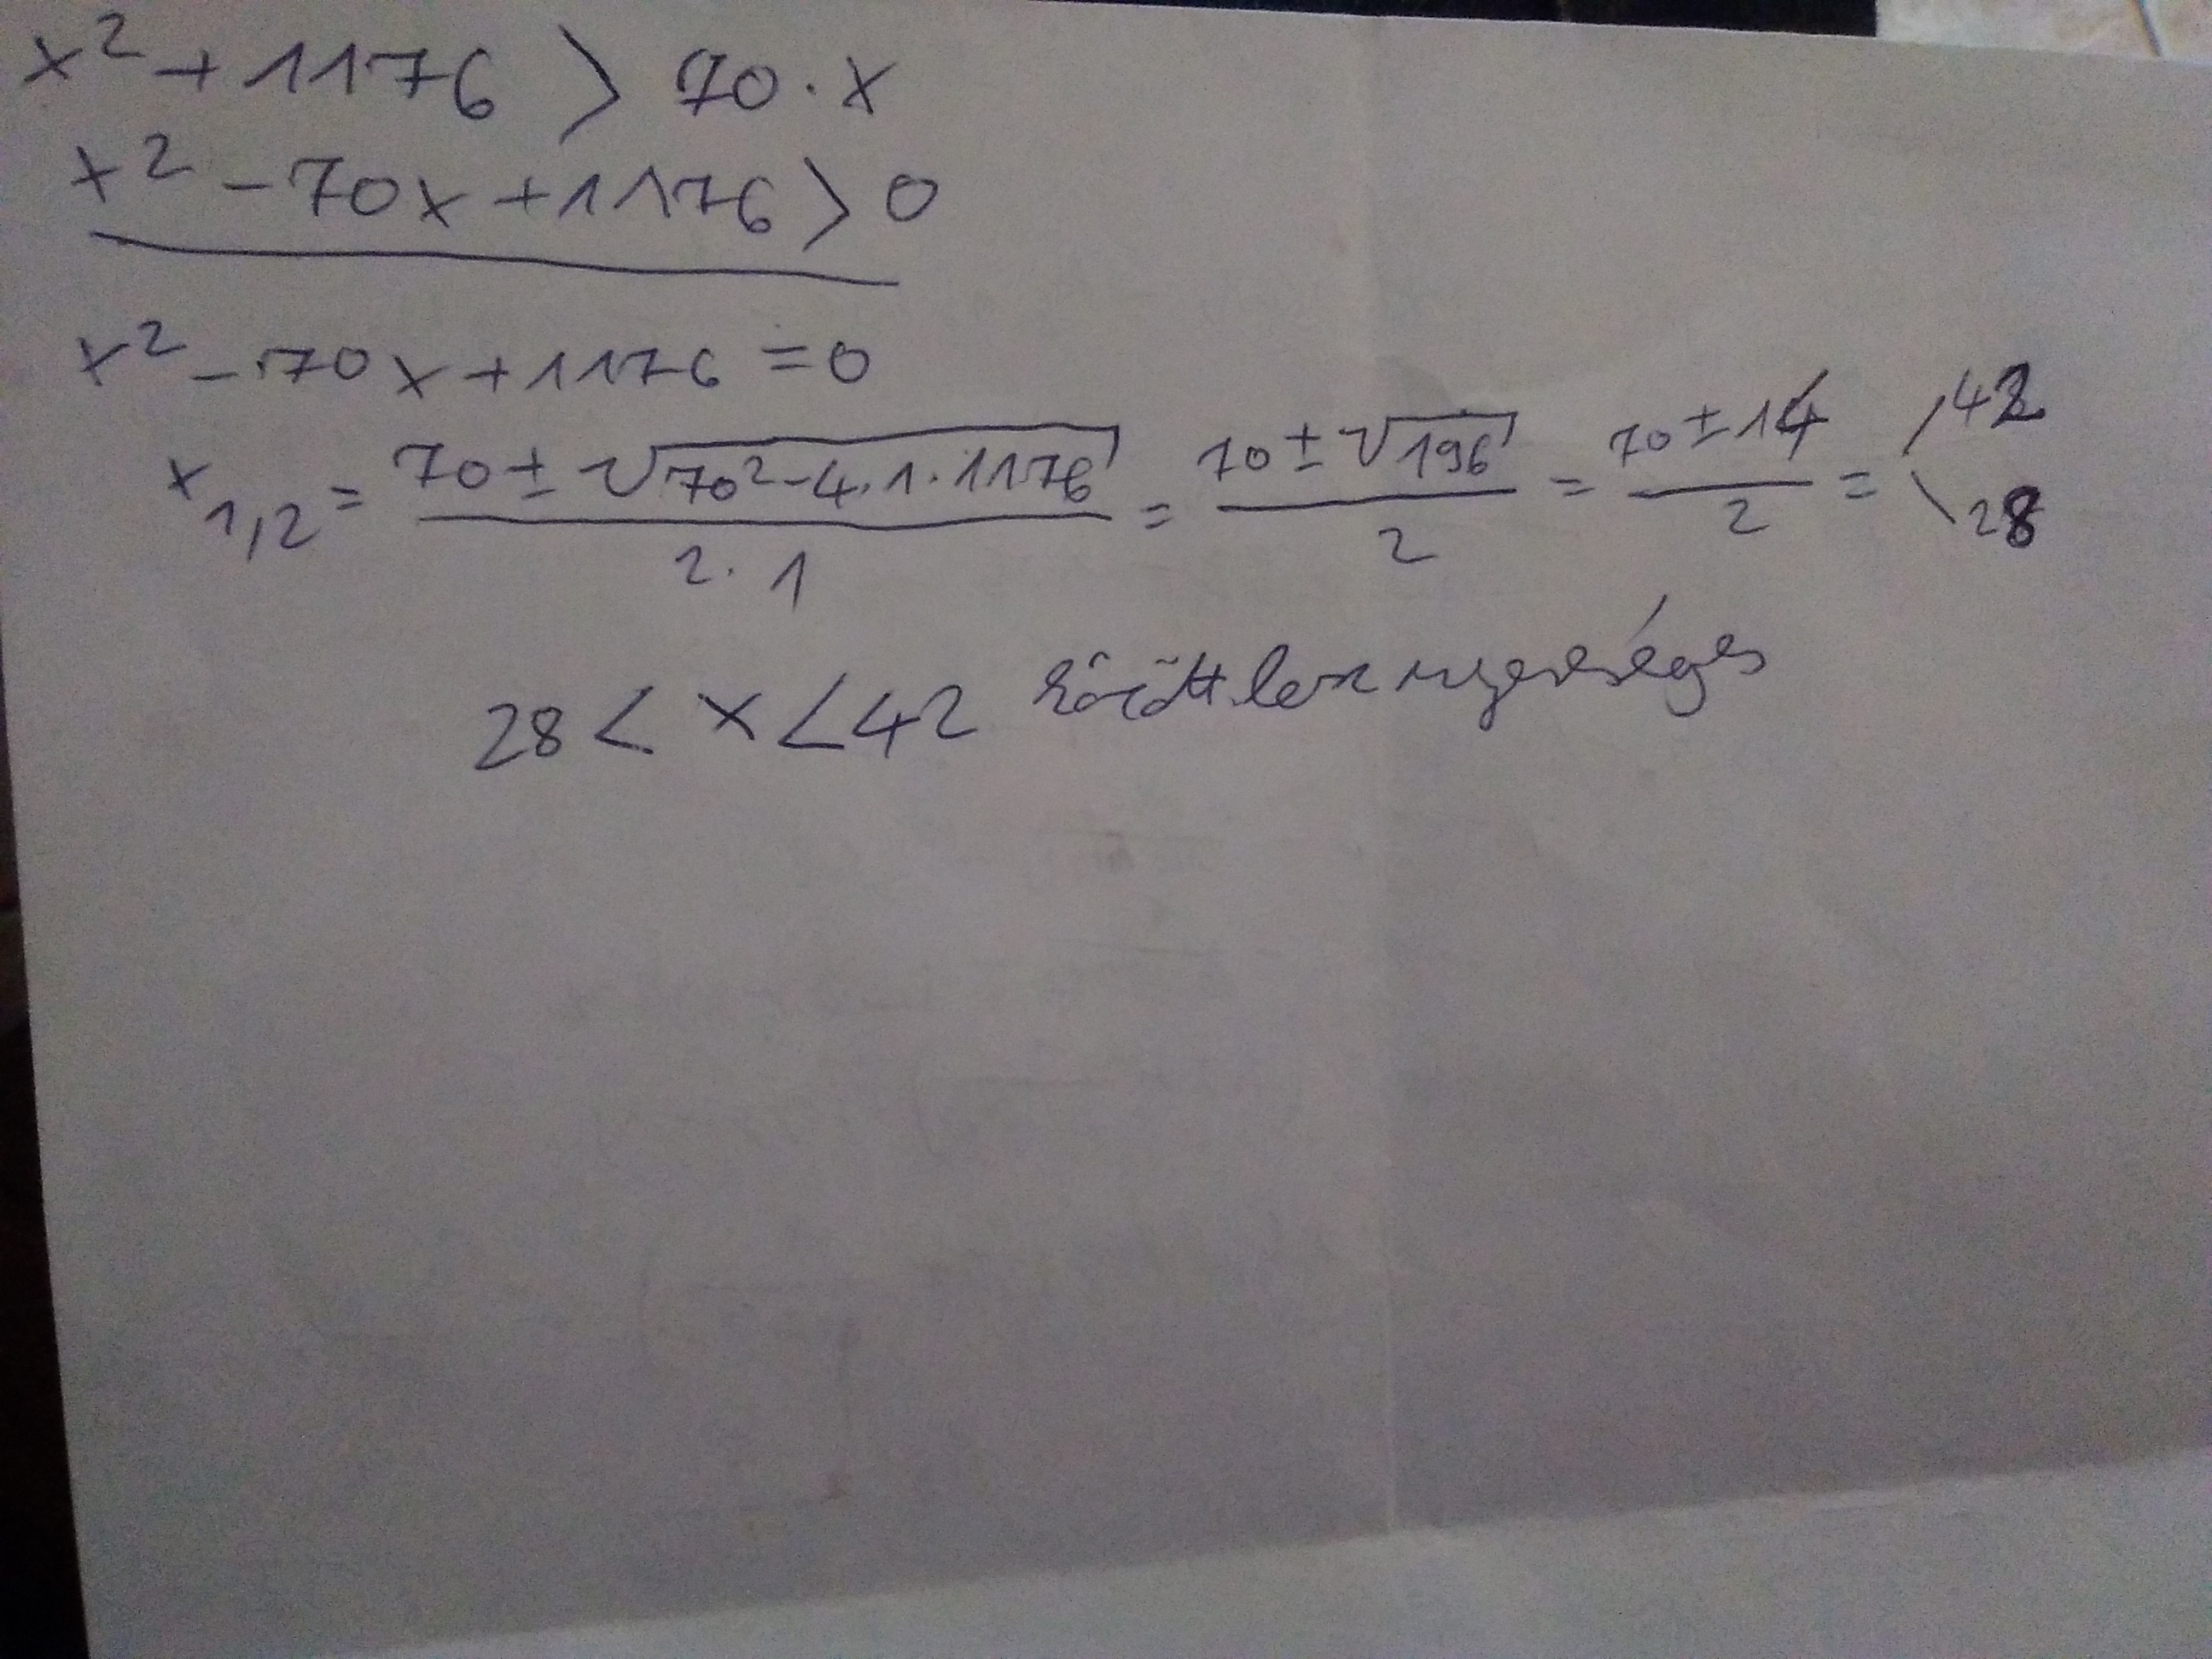 x² + 1176 > 70 · x
x² - 70x + 1176 > 0
x² - 70x + 1176 = 0
x₁,₂ = (70 ± √(70² - 4 · 1 · 1176)) / (2 · 1) = (70 ± √196) / 2 = (70 ± 14) / 2 = 42 28
28 < x < 42 között lesz nyereséges